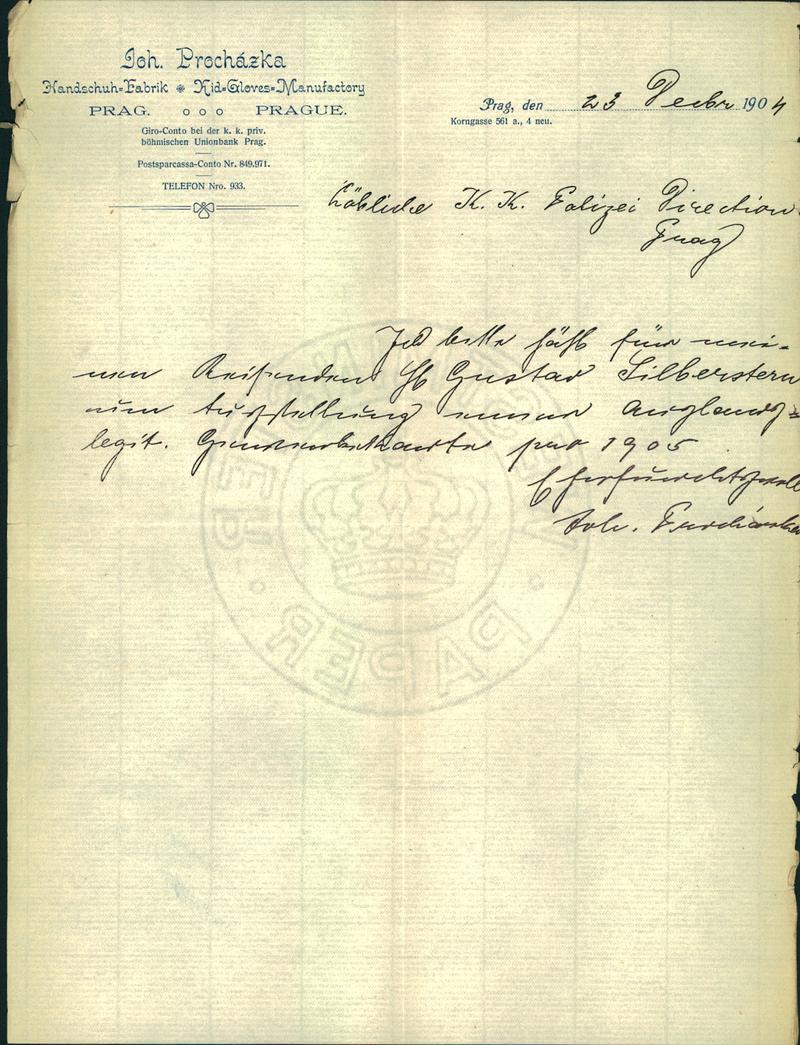 Joh. Procházka
Handschuh-Fabrik * Kid-Gloves-Manufactory
PRAG. o o o PRAGUE.
Giro-Conto bei der k. k. priv.
böhmischen Unionbank Prag.
Postsparcassa-Conto Nr. 849.971.
TELEFON Nro. 933.
Prag, den 23 Decbr 1904
Korngasse 561 a., 4 neu.
Löbliche K. K. Polizei Direction
Prag
Ich bitte höfl für mei-
nen Reisenden H Gustav Silberstern
um Ausstellung einer Auslands-
legit. Gewerbekarte pro 1905
Ehrfurchtsvoll
Joh.
PAPER